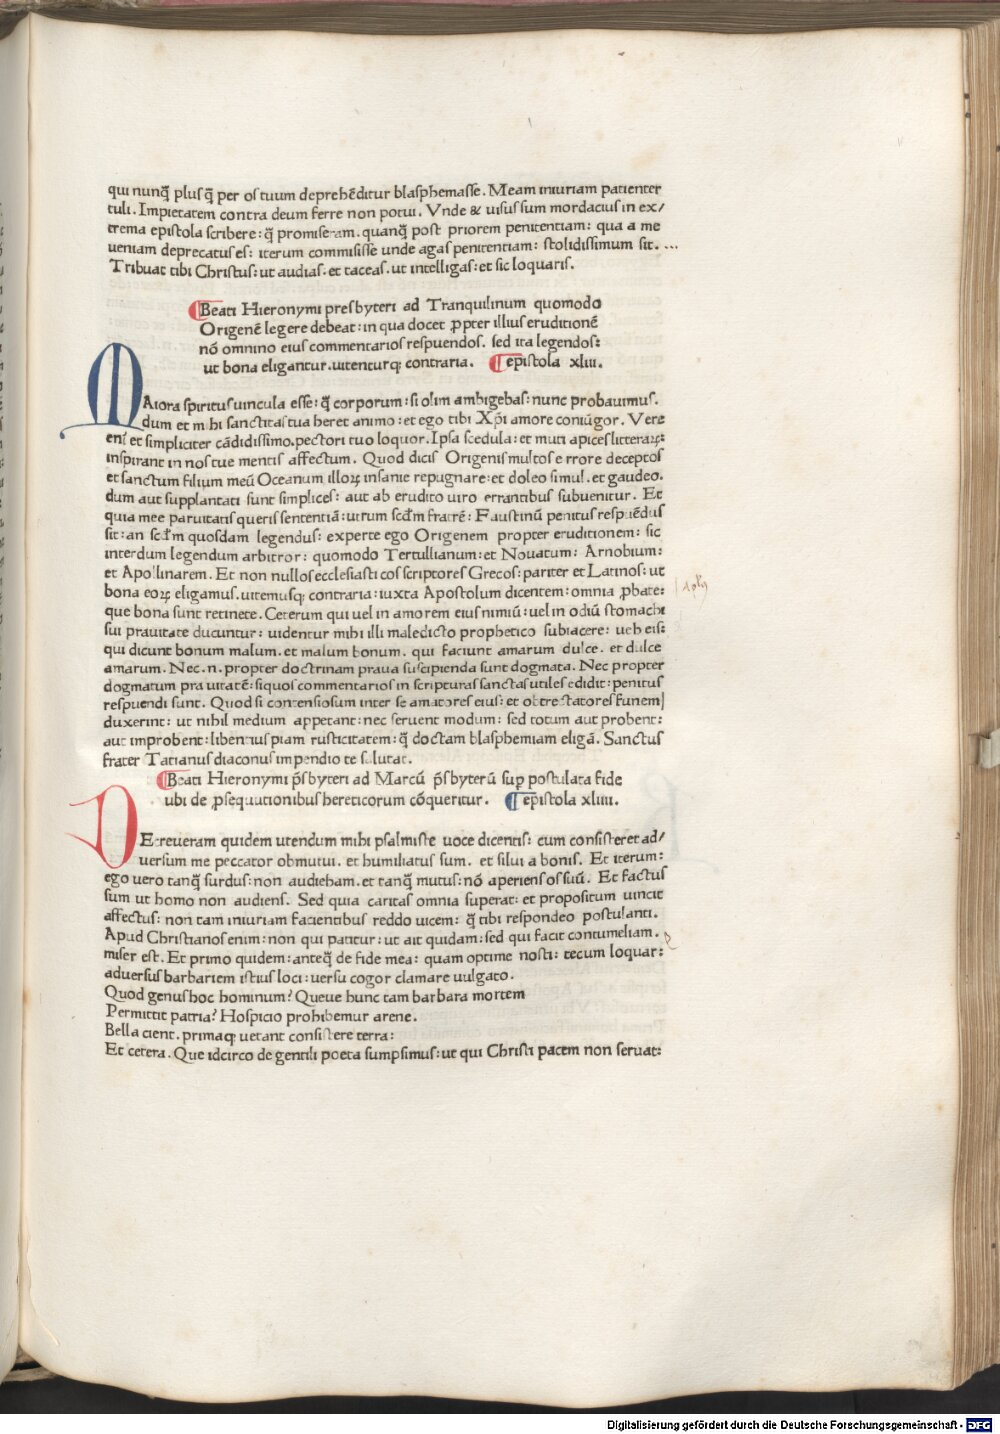 qui nunq̄ plus q̄ per os tuum deprehēditur blasphemasse. Meam iniuriam patienter
tuli. Impietatem contra deum ferre non potui. Vnde & uisus sum mordacius in ex/
trema epistola scribere: q̄ promiseram. quanq̄ post priorem penitentiam: qua a me
ueniam deprecatus es: iterum commisisse unde agas penitentiam: stolidissimum sit.
Tribuat tibi Christus: ut audias. et taceas. ut intelligas: et sic loquaris.
Beati Hieronymi presbyteri ad Tranquilinum quomodo
Origenē legere debeat: in qua docet ꝓpter illius eruditionē
nō omnino eius commentarios respuendos. sed ita legendos:
ut bona eligantur. uitenturqꝫ contraria. epistola xliii.
MAiora spiritus uincula esse: q̄ corporum: si olim ambigebas: nunc probauimus.
dum et mihi sanctitas tua heret animo: et ego tibi Xp̄i amore coniūgor. Vere
eni̅ et simpliciter cādidissimo. pectori tuo loquor. Ipsa scedula: et muti apices litteraꝝ:
inspirant in nos tue mentis affectum. Quod dicis Origenis multos errore deceptos
et sanctum filium meū Oceanum illoꝝ insanie repugnare: et doleo simul. et gaudeo.
dum aut supplantati sunt simplices: aut ab erudito uiro errantibus subuenitur. Et
quia mee paruitatis queris sententiā: utrum scd̄m fratrē: Faustinū penitus respuēdus
sit: an scd̄m quosdam legendus: experte ego Origenem propter eruditionem: sic
interdum legendum arbitror: quomodo Tertullianum: et Nouatum: Arnobium:
et Apollinarem. Et non nullos ecclesiasticos scriptores Grecos: pariter et Latinos: ut
bona eoꝝ eligamus. uitemusqꝫ contraria: iuxta Apostolum dicentem: omnia ꝓbate:
que bona sunt retinete. Ceterum qui uel in amorem eius nimiū: uel in odiū stomachi
sui prauitate ducuntur: uidentur mihi illi maledicto prophetico subiacere: ueh eis:
qui dicunt bonum malum. et malum bonum. qui faciunt amarum dulce. et dulce
amarum. Nec .n. propter doctrinam praua suscipienda sunt dogmata. Nec propter
dogmatum prauitatē: siquos commentarios in scripturas sanctas utiles edidit: penitus
respuendi sunt. Quod si contensiosum inter se amatores eius: et obtrectatores funem
duxerint: ut nihil medium appetant: nec seruent modum: sed totum aut probent:
aut improbent: libentius piam rusticitatem: q̄ doctam blasphemiam eligā. Sanctus
frater Tatianus diaconus impendio te salutat.
Beati Hieronymi p̄sbyteri ad Marcū p̄sbyterū suꝑ postulata fide
ubi de ꝓsequutionibus hereticorum cōqueritur. epistola xliiii.
DEcreueram quidem utendum mihi psalmiste uoce dicentis: cum consisteret ad/
uersum me peccator obmutui. et humiliatus sum. et silui a bonis. Et iterum:
ego uero tanq̄ surdus: non audieham. et tanq̄ mutus: nō aperiens os suū. Et factus
sum ut homo non audiens. Sed quia caritas omnia superat: et propositum uincit
affectus: non tam iniuriam facientibus reddo uicem: q̄ tibi respondeo postulanti.
Apud Christianos enim: non qui patitur: ut ait quidam: sed qui facit contumeliam.
miser est. Et primo quidem: anteq̄ de fide mea: quam optime nosti: tecum loquar:
aduersus barbariem istius loci: uersu cogor clamare uulgato.
Quod genus hoc hominum? Queue hunc tam barbara mortem
Permittit patria? Hospicio prohibemur arene.
Bella cient. primaqꝫ uetant consistere terra:
Et cetera. Que idcirco de gentili poeta sumpsimus: ut qui Christi pacem non seruat:
Digitalisierung gefördert durch die Deutsche Forschungsgemeinschaft - DFG